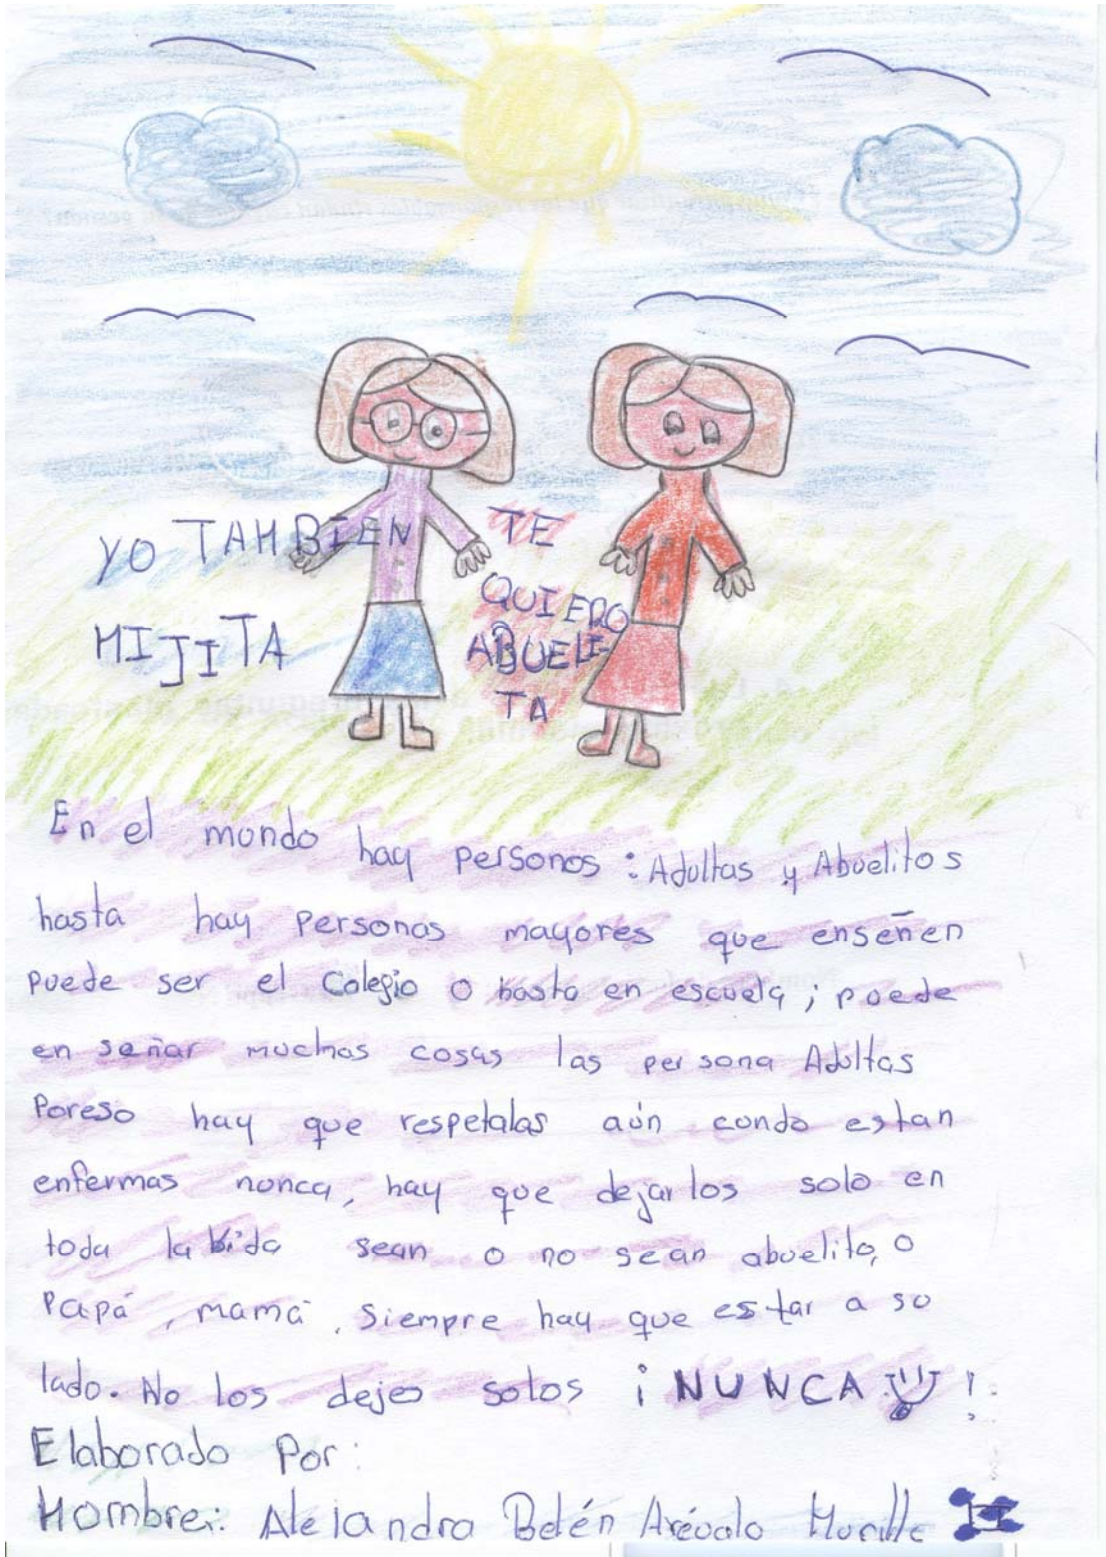 YO TAMBIEN
MIJITA
TE
QUIERO
ABUELI-
TA
En el mundo hay personas : Adultas y Abuelitos
hasta hay personas mayores que enseñen
puede ser el Colegio o hasta en escuela ; puede
en señar muchas cosas las per sona Adultas
Poreso hay que respetalas aún cundo estan
enfermas nunca, hay que dejarlos solo en
toda la bida sean o no sean abuelito, o
Papá , mamá . Siempre hay que estar a su
lado. No los dejes solos ¡ NUNCA !
Elaborado Por:
Nombre: Alejandra Belén Arévalo